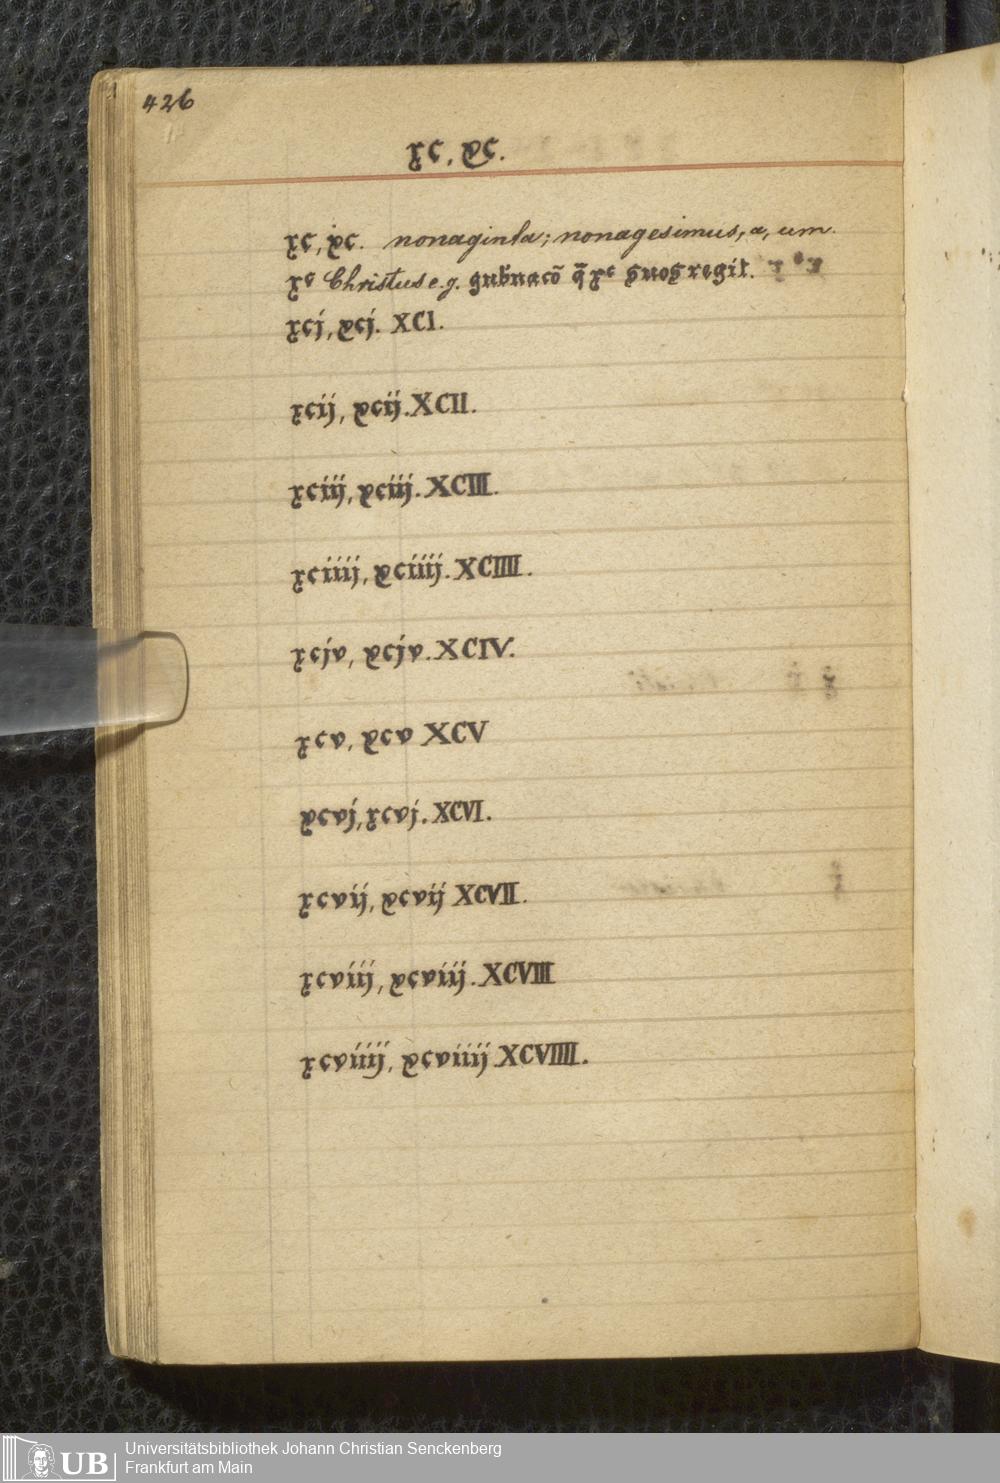 426
xc, xc.
xc, xc. nonaginta; nonagesimus, a, um.
xc Christus e.g. gub̄nacō q̄ xc
xcj, xcj. XCI.
xcij, xcij. XCII.
xciij, xciij. XCIII.
xciiij, xciiij. XCIIII.
xcjv, xcjv. XCIV.
xcv, xcv XCV
xcvj, xcvj. XCVI.
xcvij, xcvij XCVII.
xcviij, xcviij. XCVIII
xcviiij, xcviiij. XCVIIII.
UB Universitätsbibliothek Johann Christian Senckenberg
Frankfurt am Main